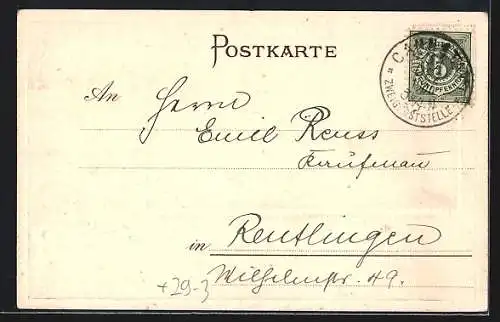 POSTKARTE
CANN
ZWEIG POSTSTELLE
5
An Herrn
Emil Reuss
Kaufmann
in Reutlingen
Wilhelmstr. 49.
+29-3